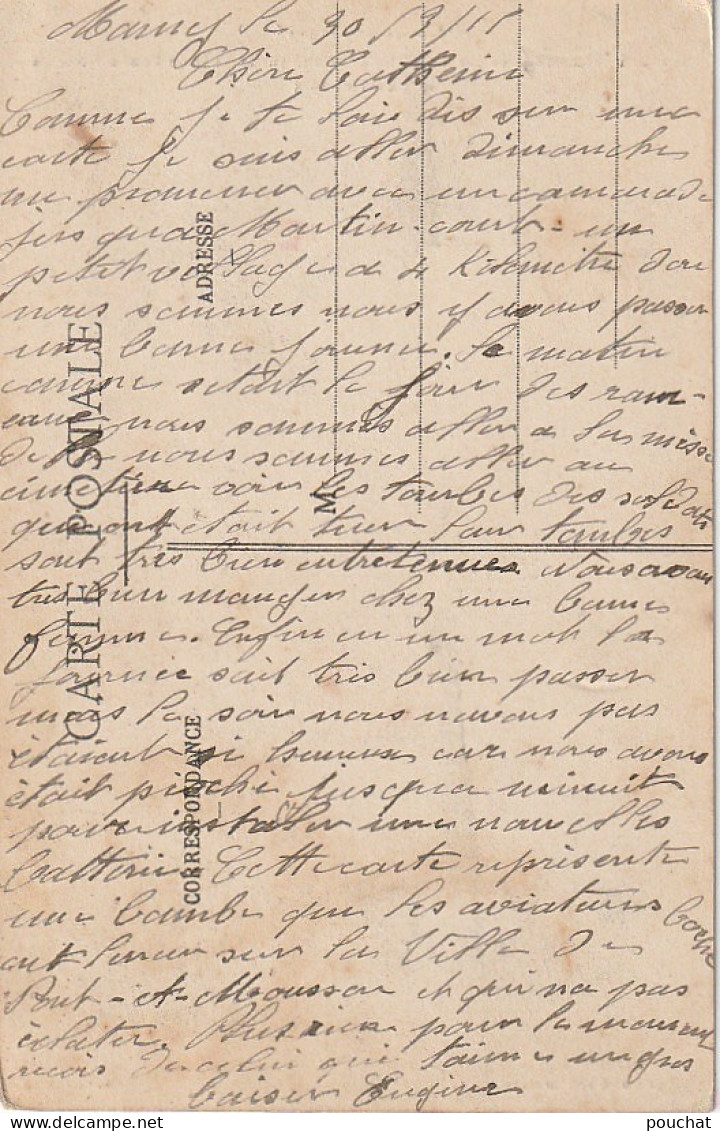 Mamey le 30/3/15
Chère Catherine
Comme je te lais dis sur une
carte je suis aller dimanche
me promener avec un camarade
jusqua Martin-court - un
petit village a 4 Kilomitre dou
nous sommes nous y avons passer
une bonne journee. Le matin
comme setait le jour des ram-
eaux nous sommes aller a la messe
de la nous sommes aller au
cimetière voir les tombes des soldats
qui ont était tuer leur tombes
sont très bien entretenues Nous avons
tres bien manger chez une bonne
femme. Enfin en un mot la
journee sait très bien passer
mais le soir nous navons pas
étaient si heureux car nous avons
était pioché jusqua minuit
pour installer une nouvelles
batterie Cette carte représente
une bombe que les aviateurs boche
ont lancer sur la Ville de
Pont-et-Mousson et qui na pas
éclater. Plus rien pour le moment
recois de celui qui taime un gros
baiser Eugène
CARTE POSTALE
CORRESPONDANCE
ADRESSE
M
pouchat